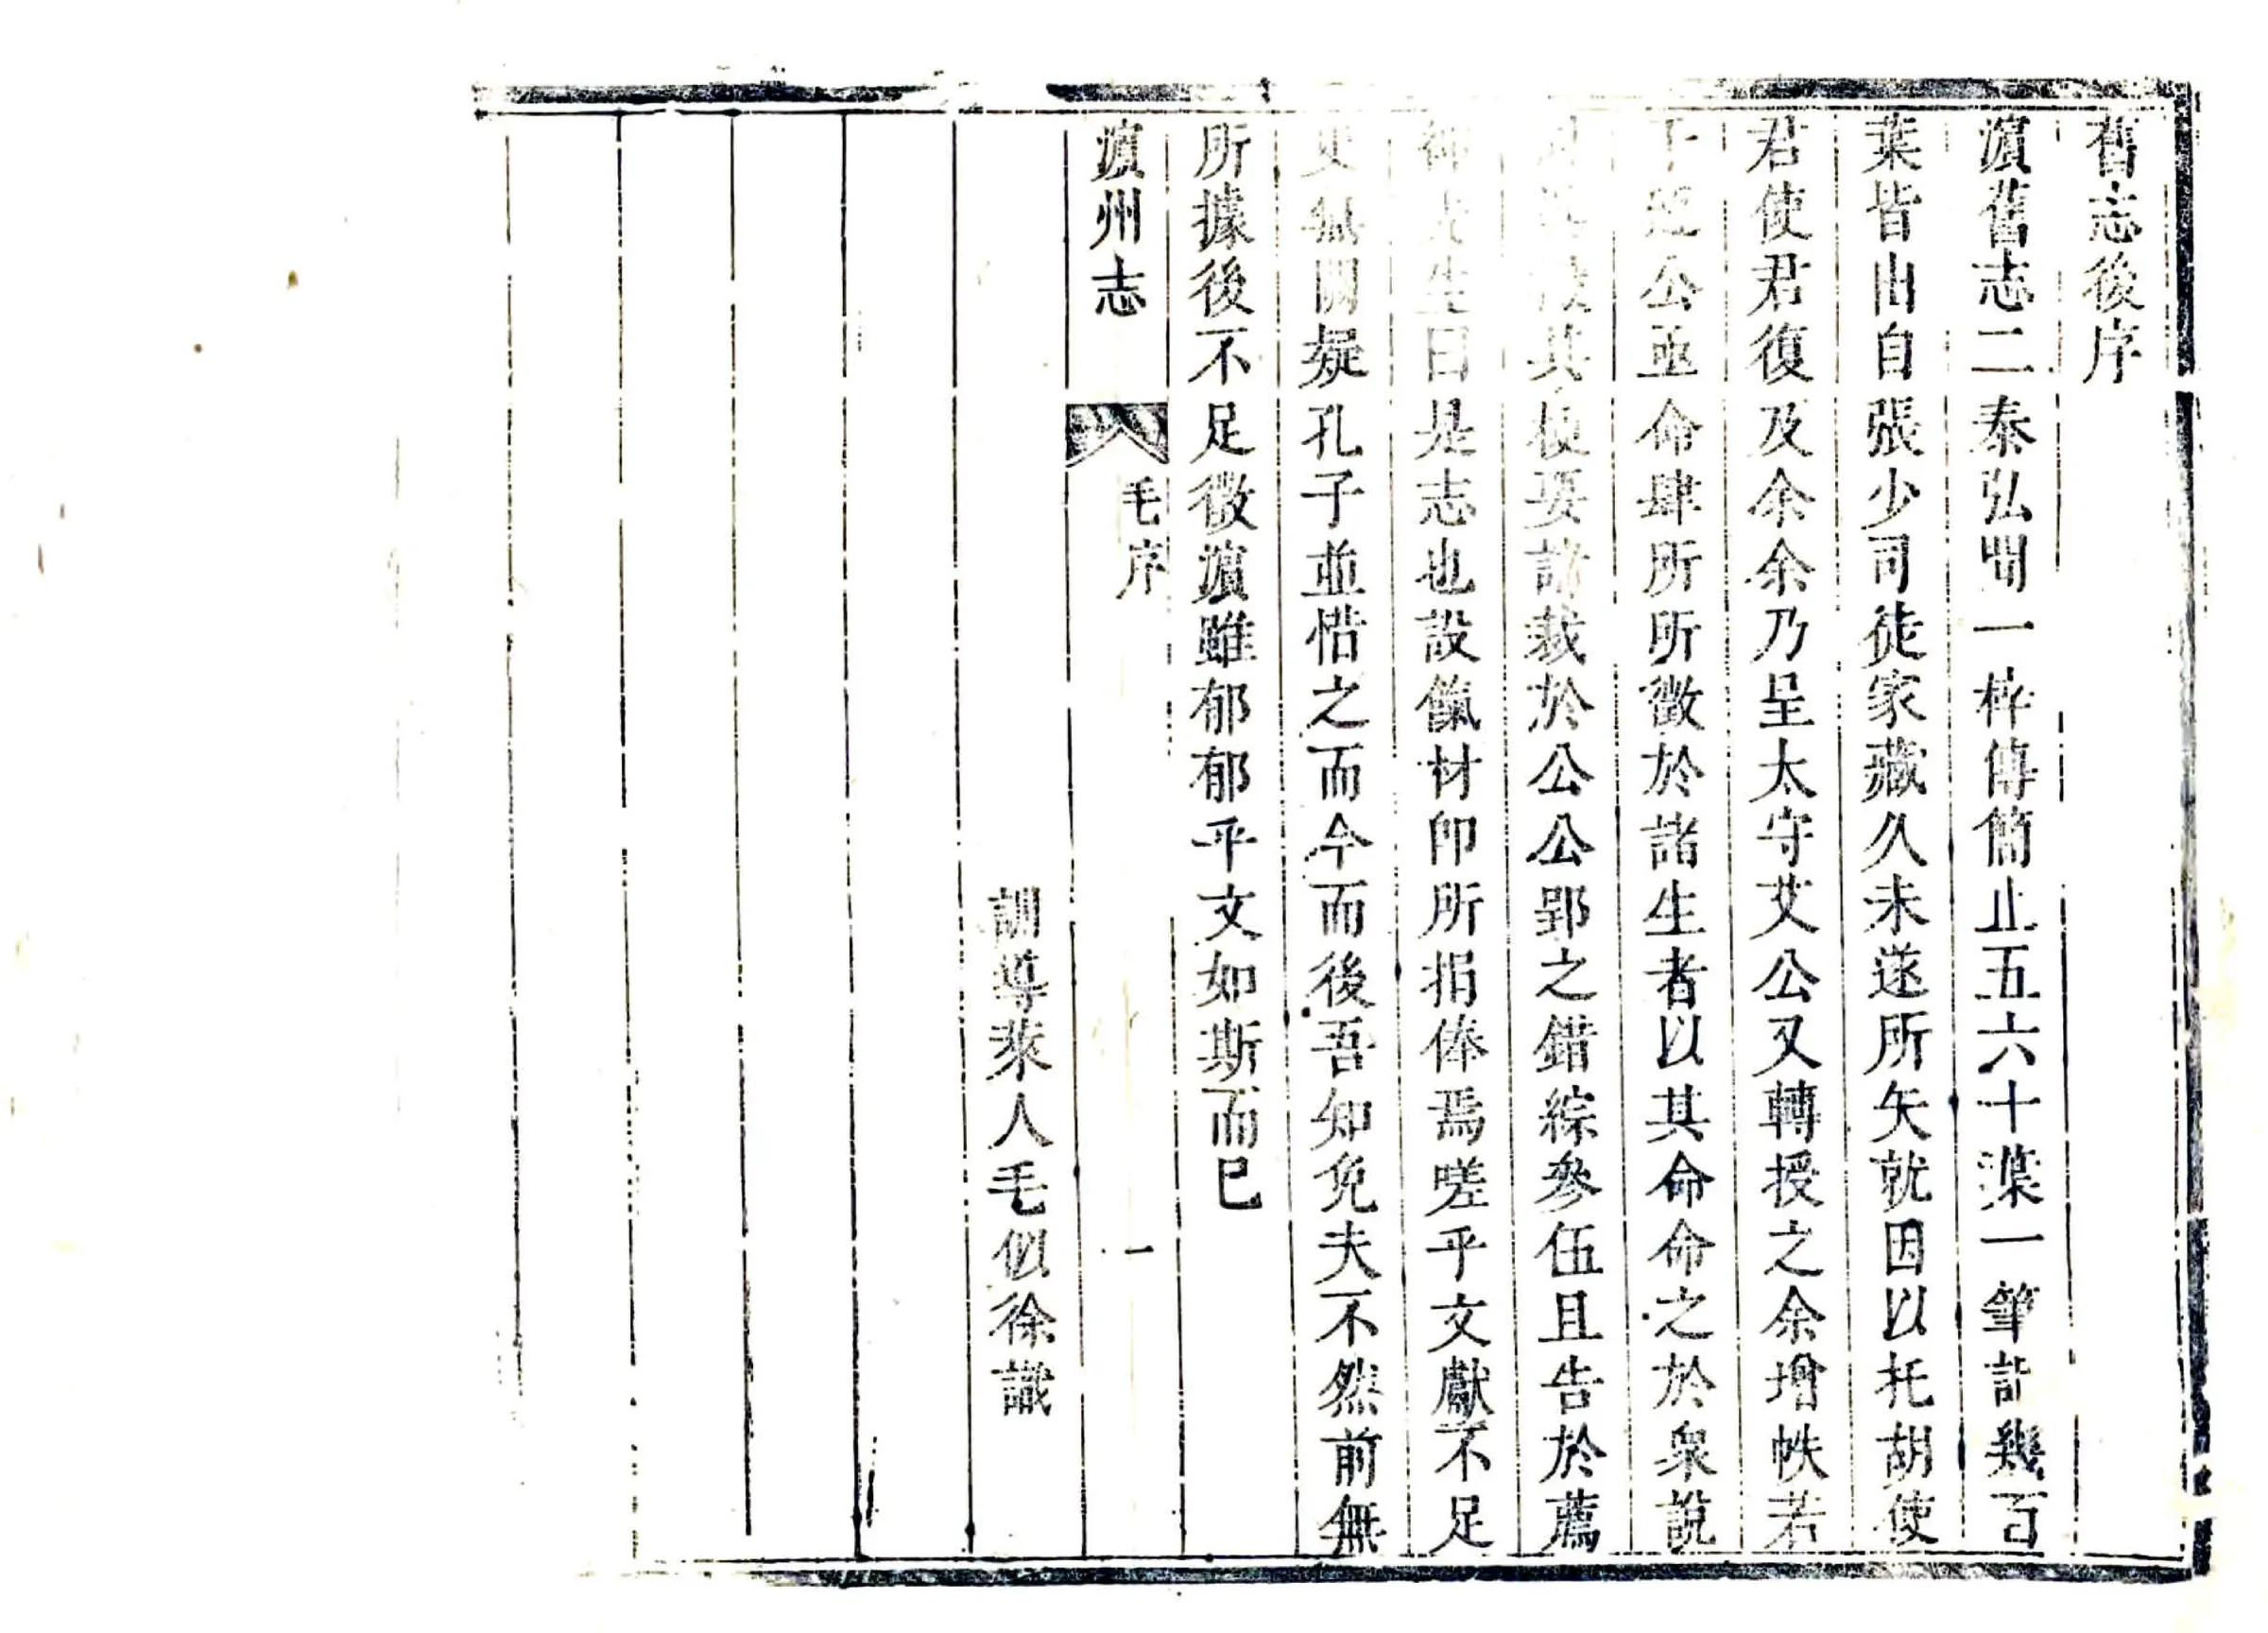 舊志後序
濵舊志二泰弘間一梓傳簡止五六十葉一筆記幾百
葉皆由自張少司徒家藏久未遂所矢就因以托胡使
君使君復及余余乃呈太守艾公艾公又轉授之余增帙若
干公亟命肆所所徵於諸生者以其命命之於衆說
其梗要諸裁於公公郢之錯綜參伍且告於薦
先生曰是志也設儩材卽所捐俸焉嗟乎文獻不足
史無闕疑孔子並惜之而今而後吾知免夫不然前無
所據後不足徵濵雖郁郁乎文如斯而已
濵州志
毛序
一
訓導萊人毛似徐識